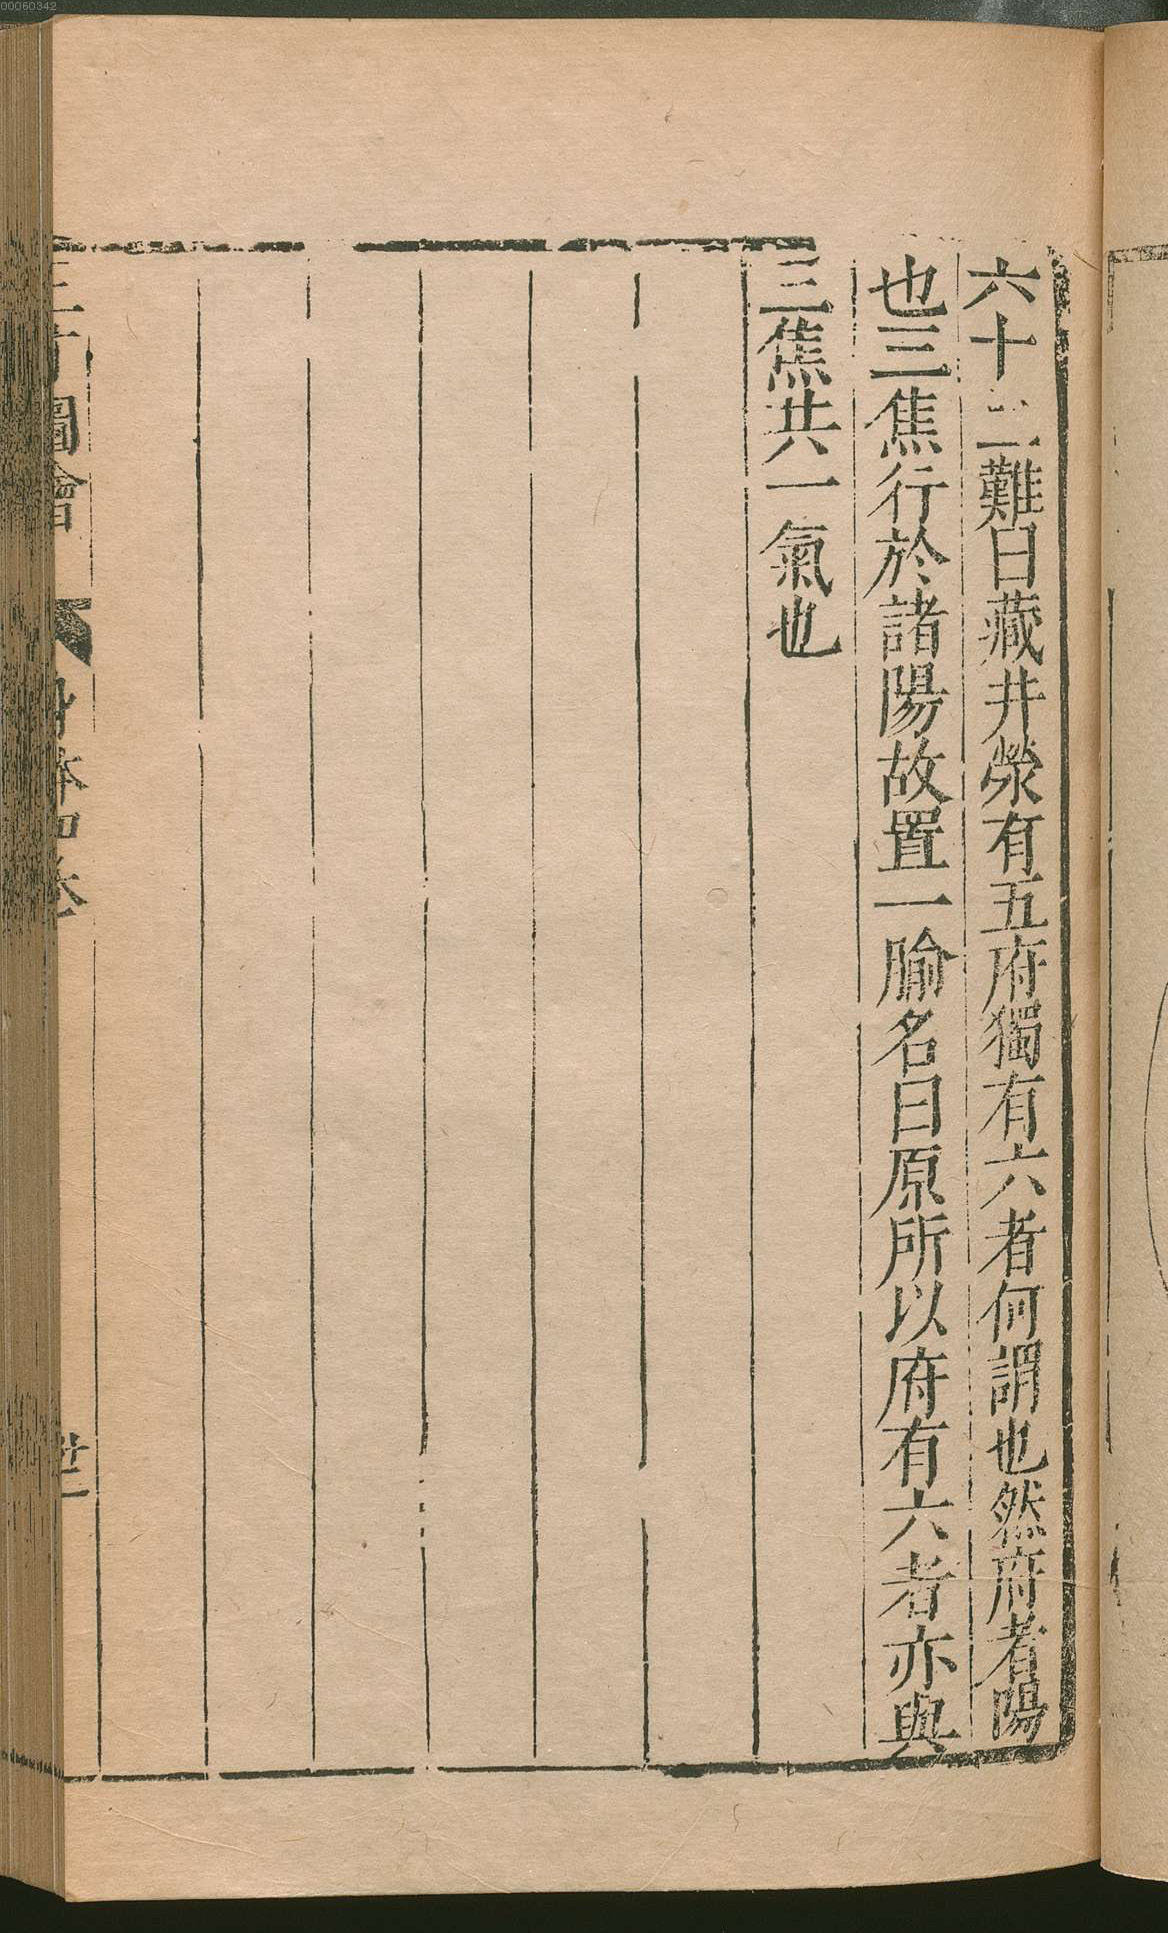 六十二難曰藏井滎有五府獨有六者何謂也然府者陽
也三焦行於諸陽故置一腧名曰原所以府有六者亦與
三焦共一氣也
圖會
00060342